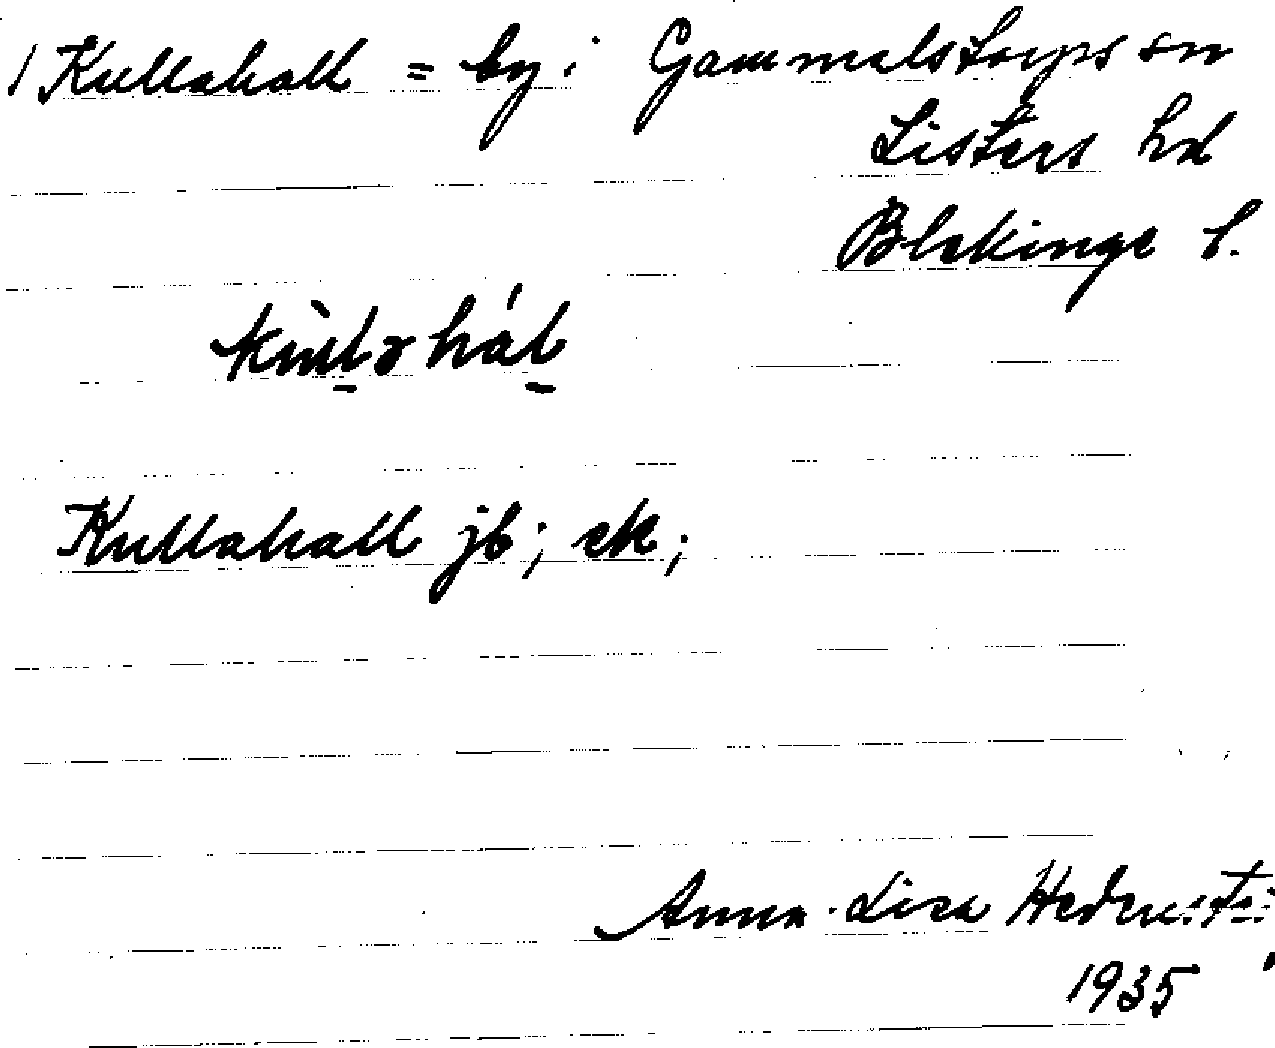 1 Kullahall = by i Gammalstorps sn
Listers hd
Blekinge l.
Kullahall jb; ek;
Anna-Lisa
1935